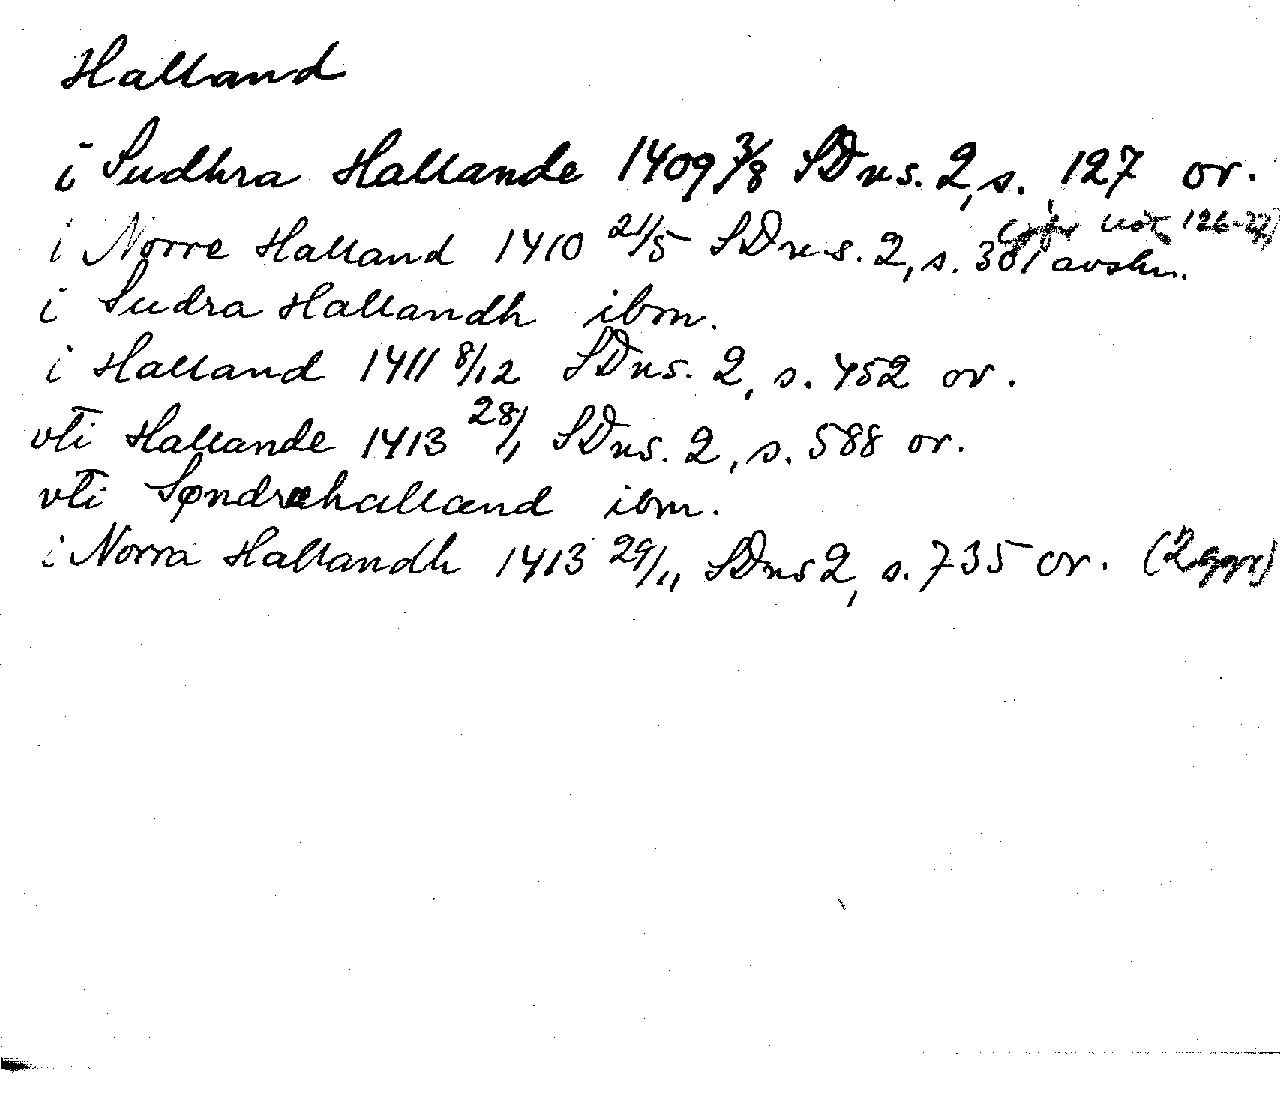 Halland
i Sudhra Hallande 1409 3/8 SDns. 2, s. 127 or.
i Norre Halland 1410 21/5 SDns. 2, s. 301 avskr.
i Sudra Hallandh ibm.
i Halland 1411 8/12 SDns. 2, s. 452 or.
vti Hallande 1413 28/1 SDns. 2, s. 588 or.
vti Søndrehalland ibm.
i Norra Hallandh 1413 29/11 SDns 2, s. 735 or. (2 ggr)